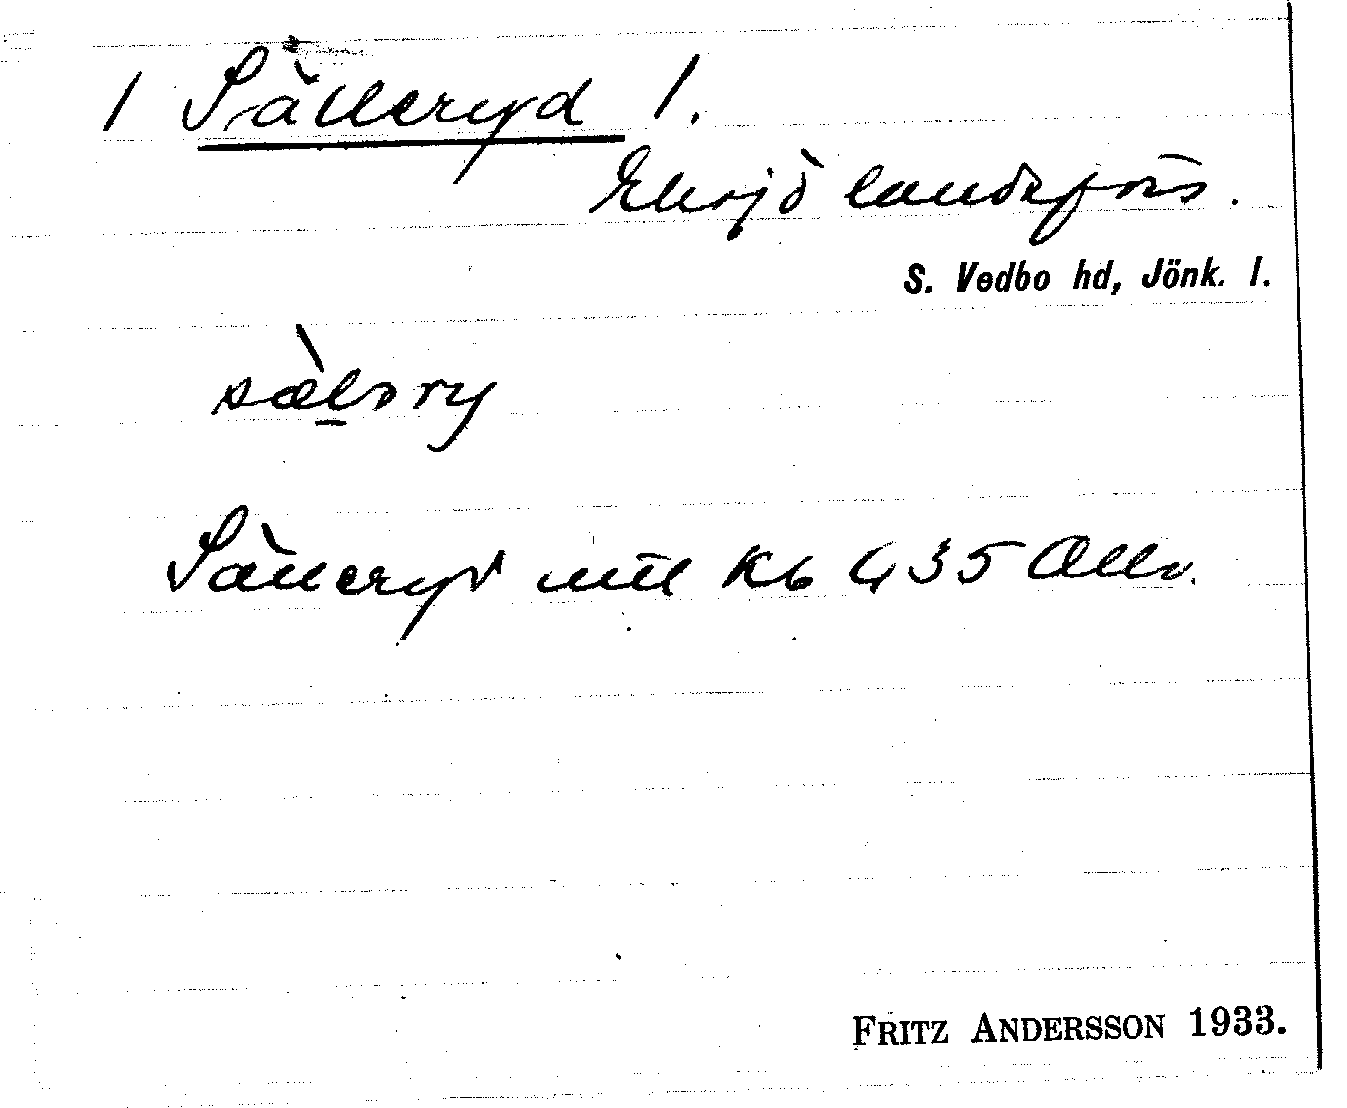 1 Sälleryd 1.
Eksjö landsförs.
S. Vedbo hd, Jönk. l.
sælsry
Sälleryd mtl Kb 435 Allm.
FRITZ ANDERSSON 1933.